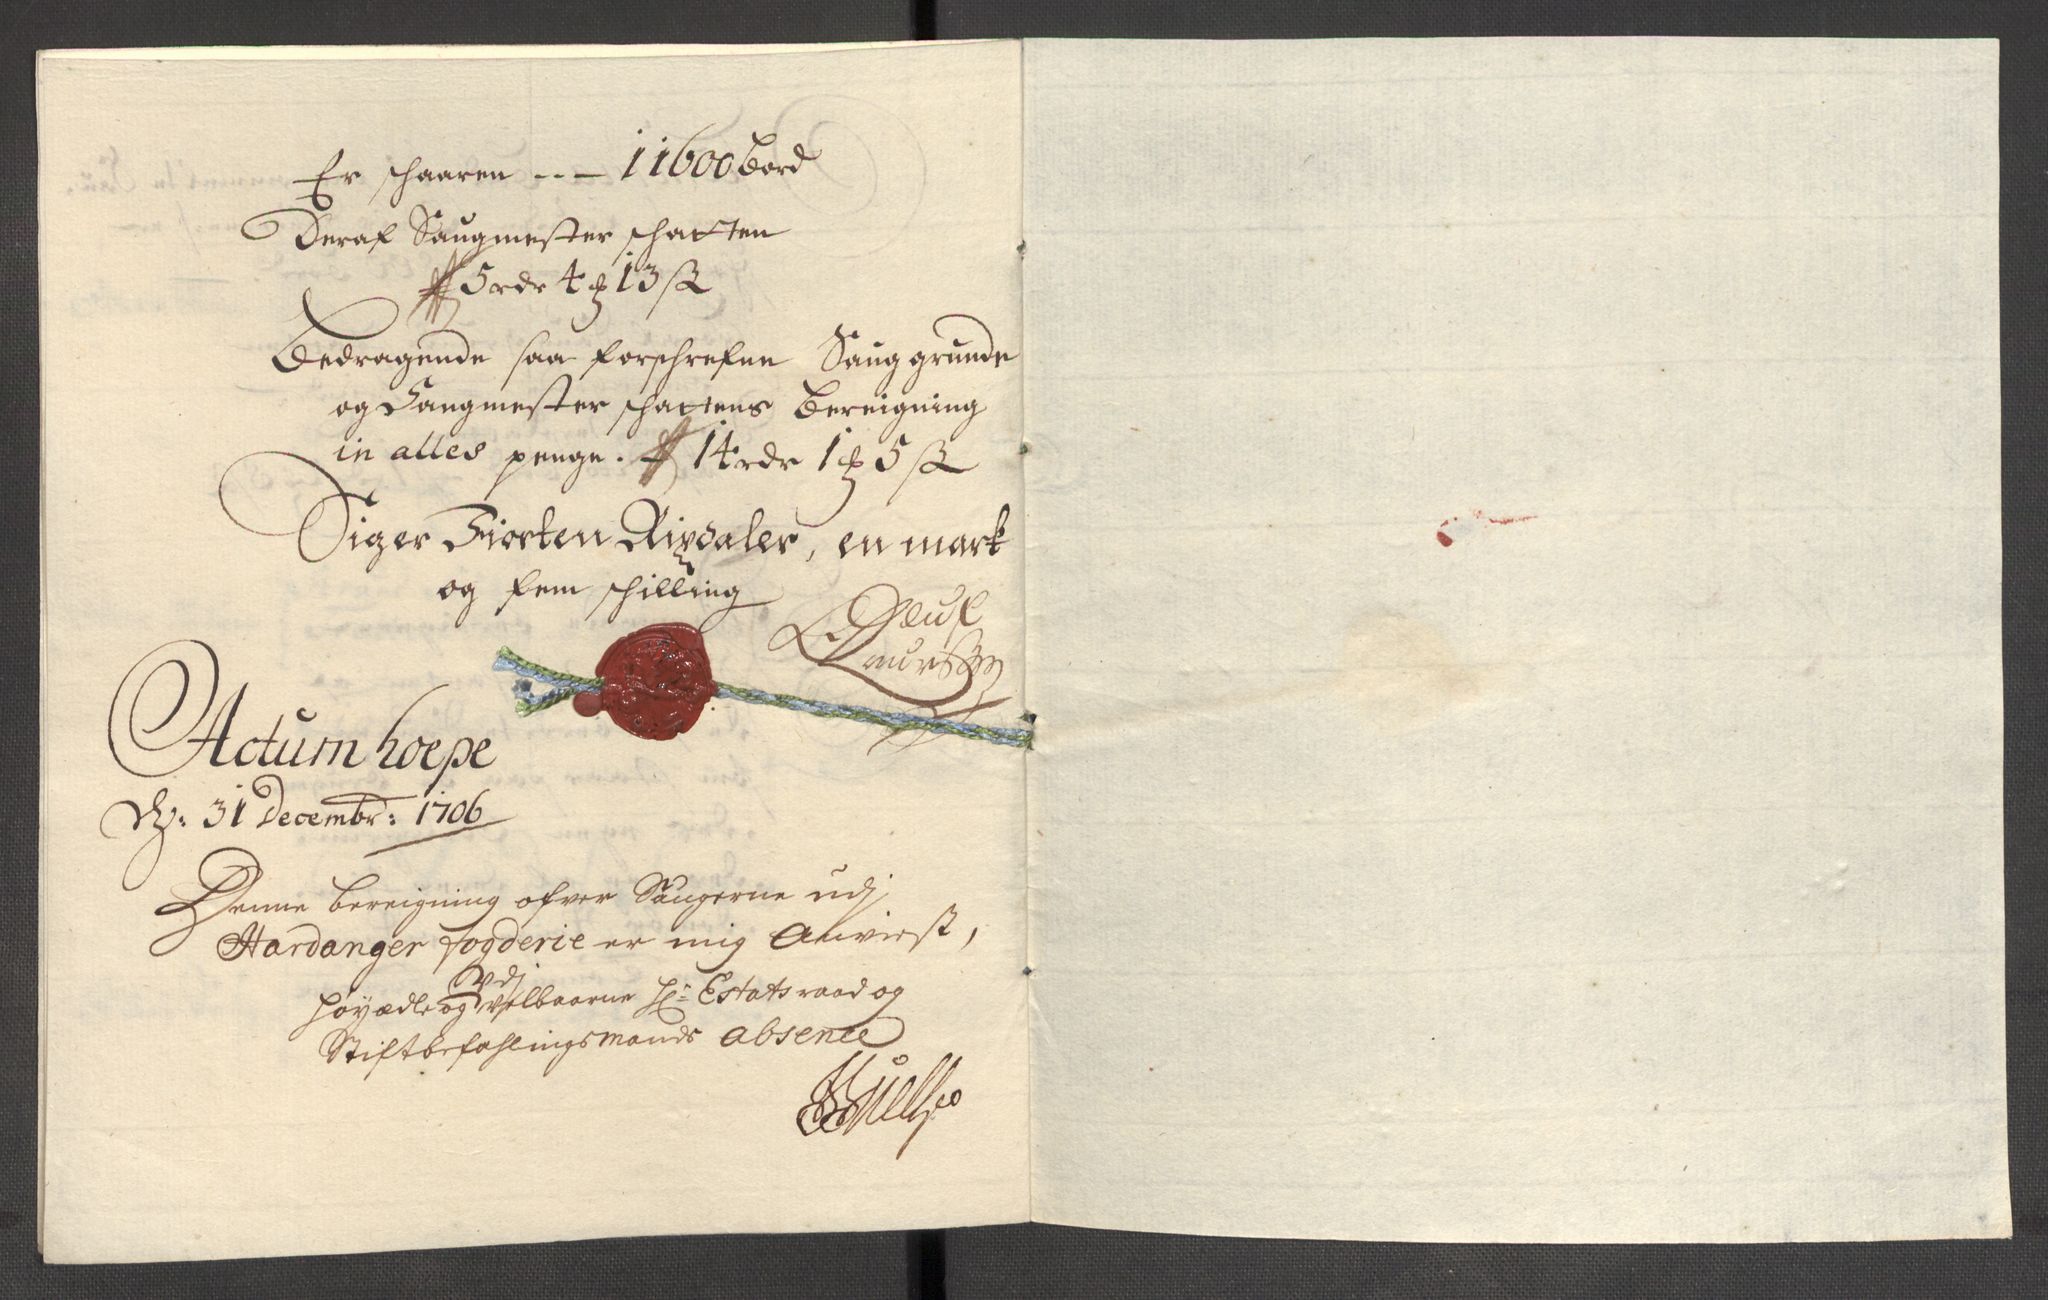 Er schaaren --- 11600 Bord
Deraf Saugmester schatten
5 rdr 4 ꝑ 13 ß
Bedragende saa forschrefne Sauggrunde
og Saugmester schattens Bereigning
in alles penge. 14 rdr 1 ꝑ 5 ß
Siger Fiorten Rixdaler, en mark
og fem schilling
Oluf
Laurssøn
Actum hoepe
dẏ: 31 Decembr: 1706
Denne bereigning ofver Saugerne udj
Hardanger fogderie er mig Anvist,
udj
høyædle og velbaarne Hr: Estatsraad og
Stiftbefahlingsmands absence